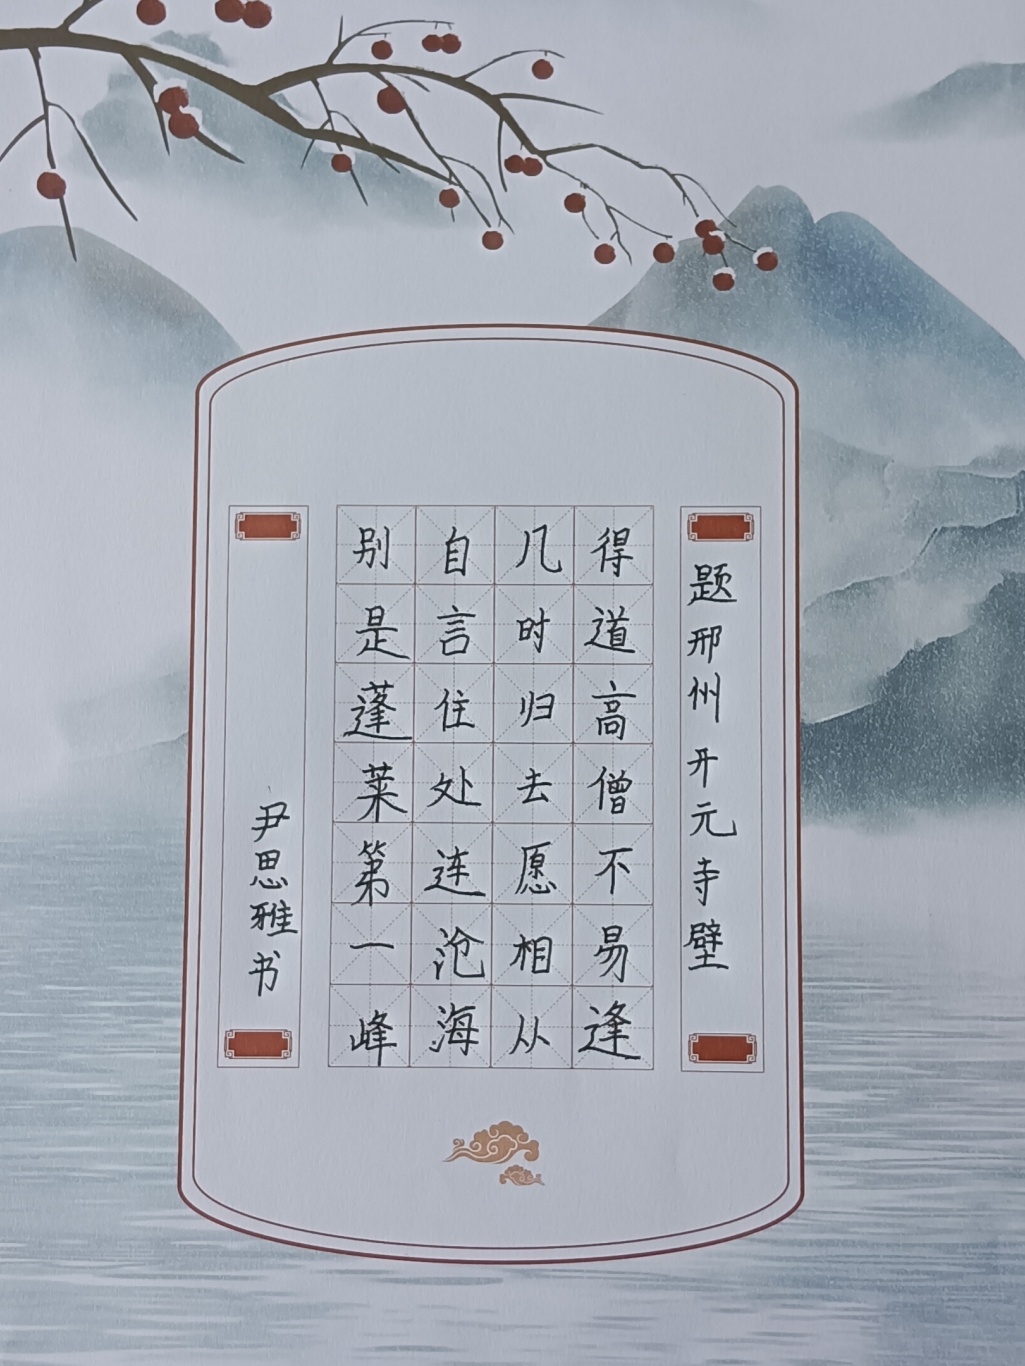 题邢州开元寺壁
得道高僧不易逢
几时归去愿相从
自言住处连沧海
别是蓬莱第一峰
尹思雅书